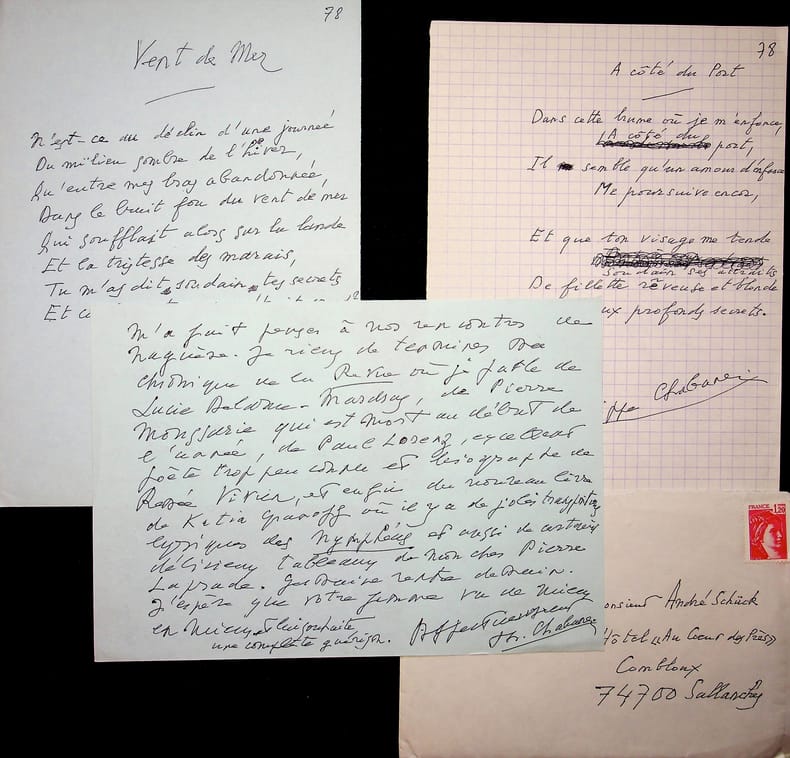 78
Vent de Mer
N'est-ce au déclin d'une journée
Du milieu sombre de l'hiver,
Qu'entre mes bras abandonnée,
Dans le bruit fou du vent de mer
Qui soufflait alors sur la lande
Et la tristesse des marais,
Tu m'as dit soudain tes secrets
Et
78
A côté du Port
Dans cette brume où je m'enfonce,
A côté du port,
Il semble qu'un amour d'enfance
Me poursuive encor,
Et que ton visage me tende
Soudain ses attraits
De fillette rêveuse et blonde
ux profonds secrets.
ppe Chabaneix
m'a fait penser à nos rencontres de
naguère. Je viens de terminer une
chronique de la Revue où je parle de
Lucie Delarue-Mardrus, de Pierre
qui est mort au début de
l'année, de Paul Lorenz, excellent
poète trop peu connu et biographe de
Renée Vivien, et enfin du nouveau livre
de Katia Granoff où il y a de jolies transpositions
lyriques des Nymphéas et aussi de certains
délicieux tableaux de mon cher Pierre
Laprade. Germaine rentre demain.
J'espère que votre femme va de mieux
en mieux et lui souhaite
une complète guérison. Affectueusement
Ph. Chabaneix
FRANCE 1,20
onsieur André Schück
Hôtel "Au Coeur des Prés"
Combloux
74700 Sallanches